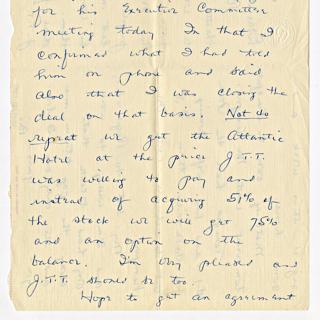 for his Executive Committee
meeting today In that I
confirmed what I had told
him on phone and said
also that I was closing the
deal on that basis. Not to
repeat we get the Atlantic
Hotel at the price J.T.T.
was willing to pay and
instead of acquiring 51% of
the stock we will get 75%
and an option on the
balance. I'm very pleased and
J.T.T. should be too.
Hope to get an agreement